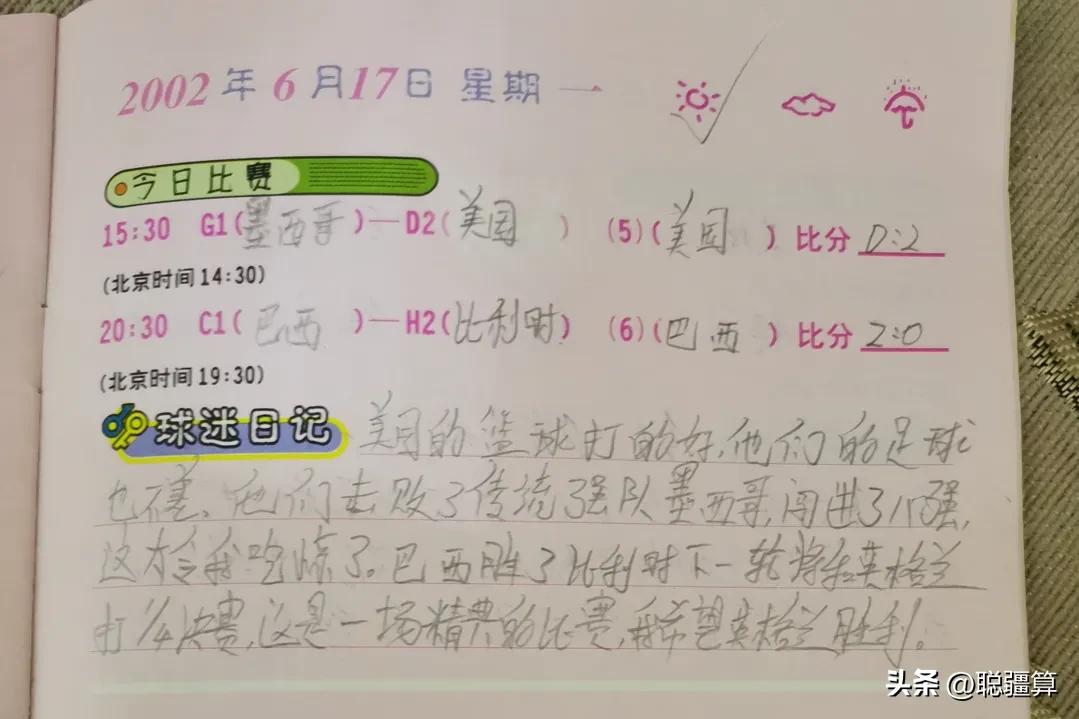 2002年6月17日 星期一
今日比赛
15:30 G1(墨西哥)—D2(美国) (5)(美国) 比分 0:2
(北京时间14:30)
20:30 C1(巴西)—H2(比利时) (6)(巴西) 比分 2:0
(北京时间19:30)
球迷日记 美国的篮球打的好,他们的足球
也不差、他们击败了传统强队墨西哥,闯进了八强,
这太令我吃惊了。巴西胜了比利时下一轮将和英格兰
打1/4决赛,这是一场精典的比赛,我希望英格兰胜利。
头条 @聪疆算